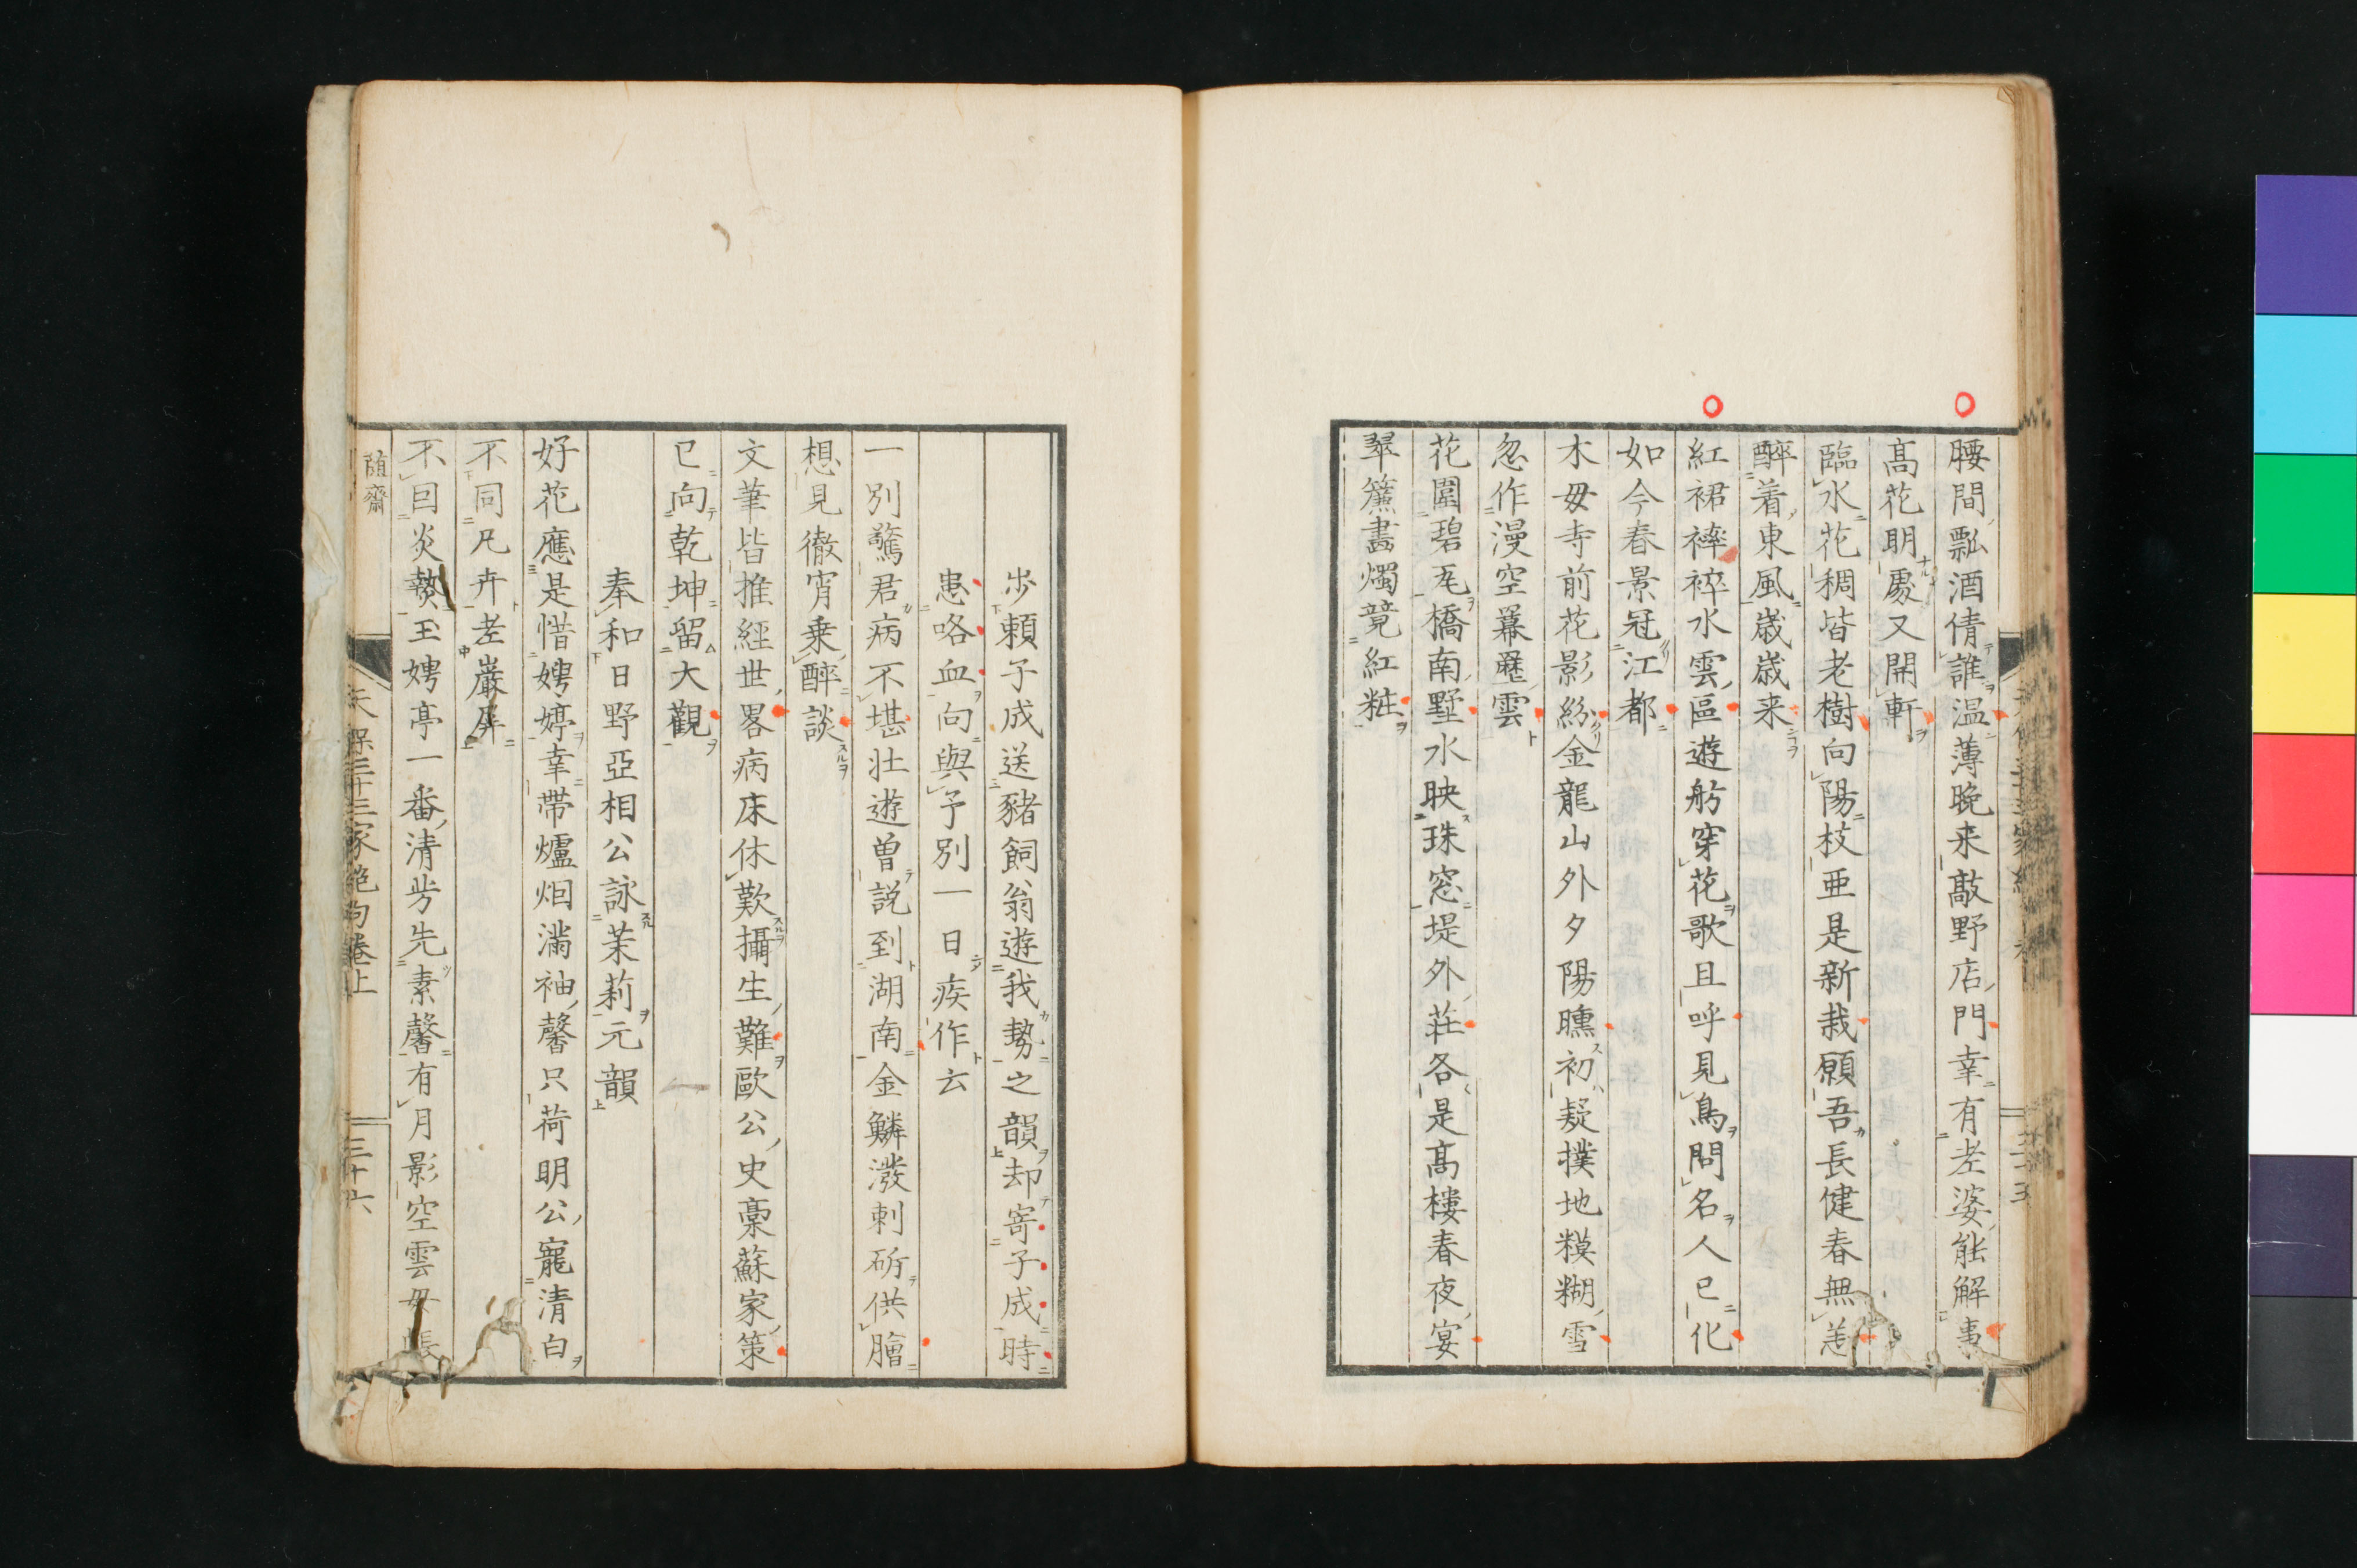 腰間瓢酒倩誰温薄晩来敲野店門幸有老婆能解事
高花明處又開軒
臨水花稠皆老樹向陽枝亜是新栽願吾長健春無恙
醉着東風歳歳来
紅裙襍襍水雲區遊舫穿花歌且呼見鳥問名人已化
如今春景冠江都
木母寺前花影紛金龍山外夕陽曛初疑撲地糢糊雪
忽作漫空羃𮥼雲
花圍碧瓦橋南墅水映珠窓堤外荘各是高樓春夜宴
翠簾畫燭競紅粧
步頼子成送豬飼翁遊我勢之韻却寄子成時
患咯血向與予別一日疾作云
一別驚君病不堪壮遊曽説到湖南金鱗潑剌斫供膾
想見徹宵乗醉談
文筆皆推經世畧病床休歎攝生難歐公史稾蘇家策
已向乾坤留大觀
奉和日野亞相公詠茉莉元韻
好花應是惜娉婷幸帶爐烟滿袖馨只荷明公寵清白
不同凡卉老巖扉
不回炎𤍠玉娉亭一番清芳先素馨有月影空雲母帳
随齋
天保三十三家絶句巻上
三十六